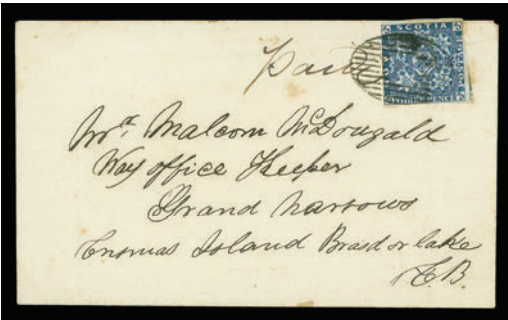 SCOTIA
Paid
Mr. Malcom McDougald
Way office Keeper
Grand Narrows
Island Brasdor lake
C.B.